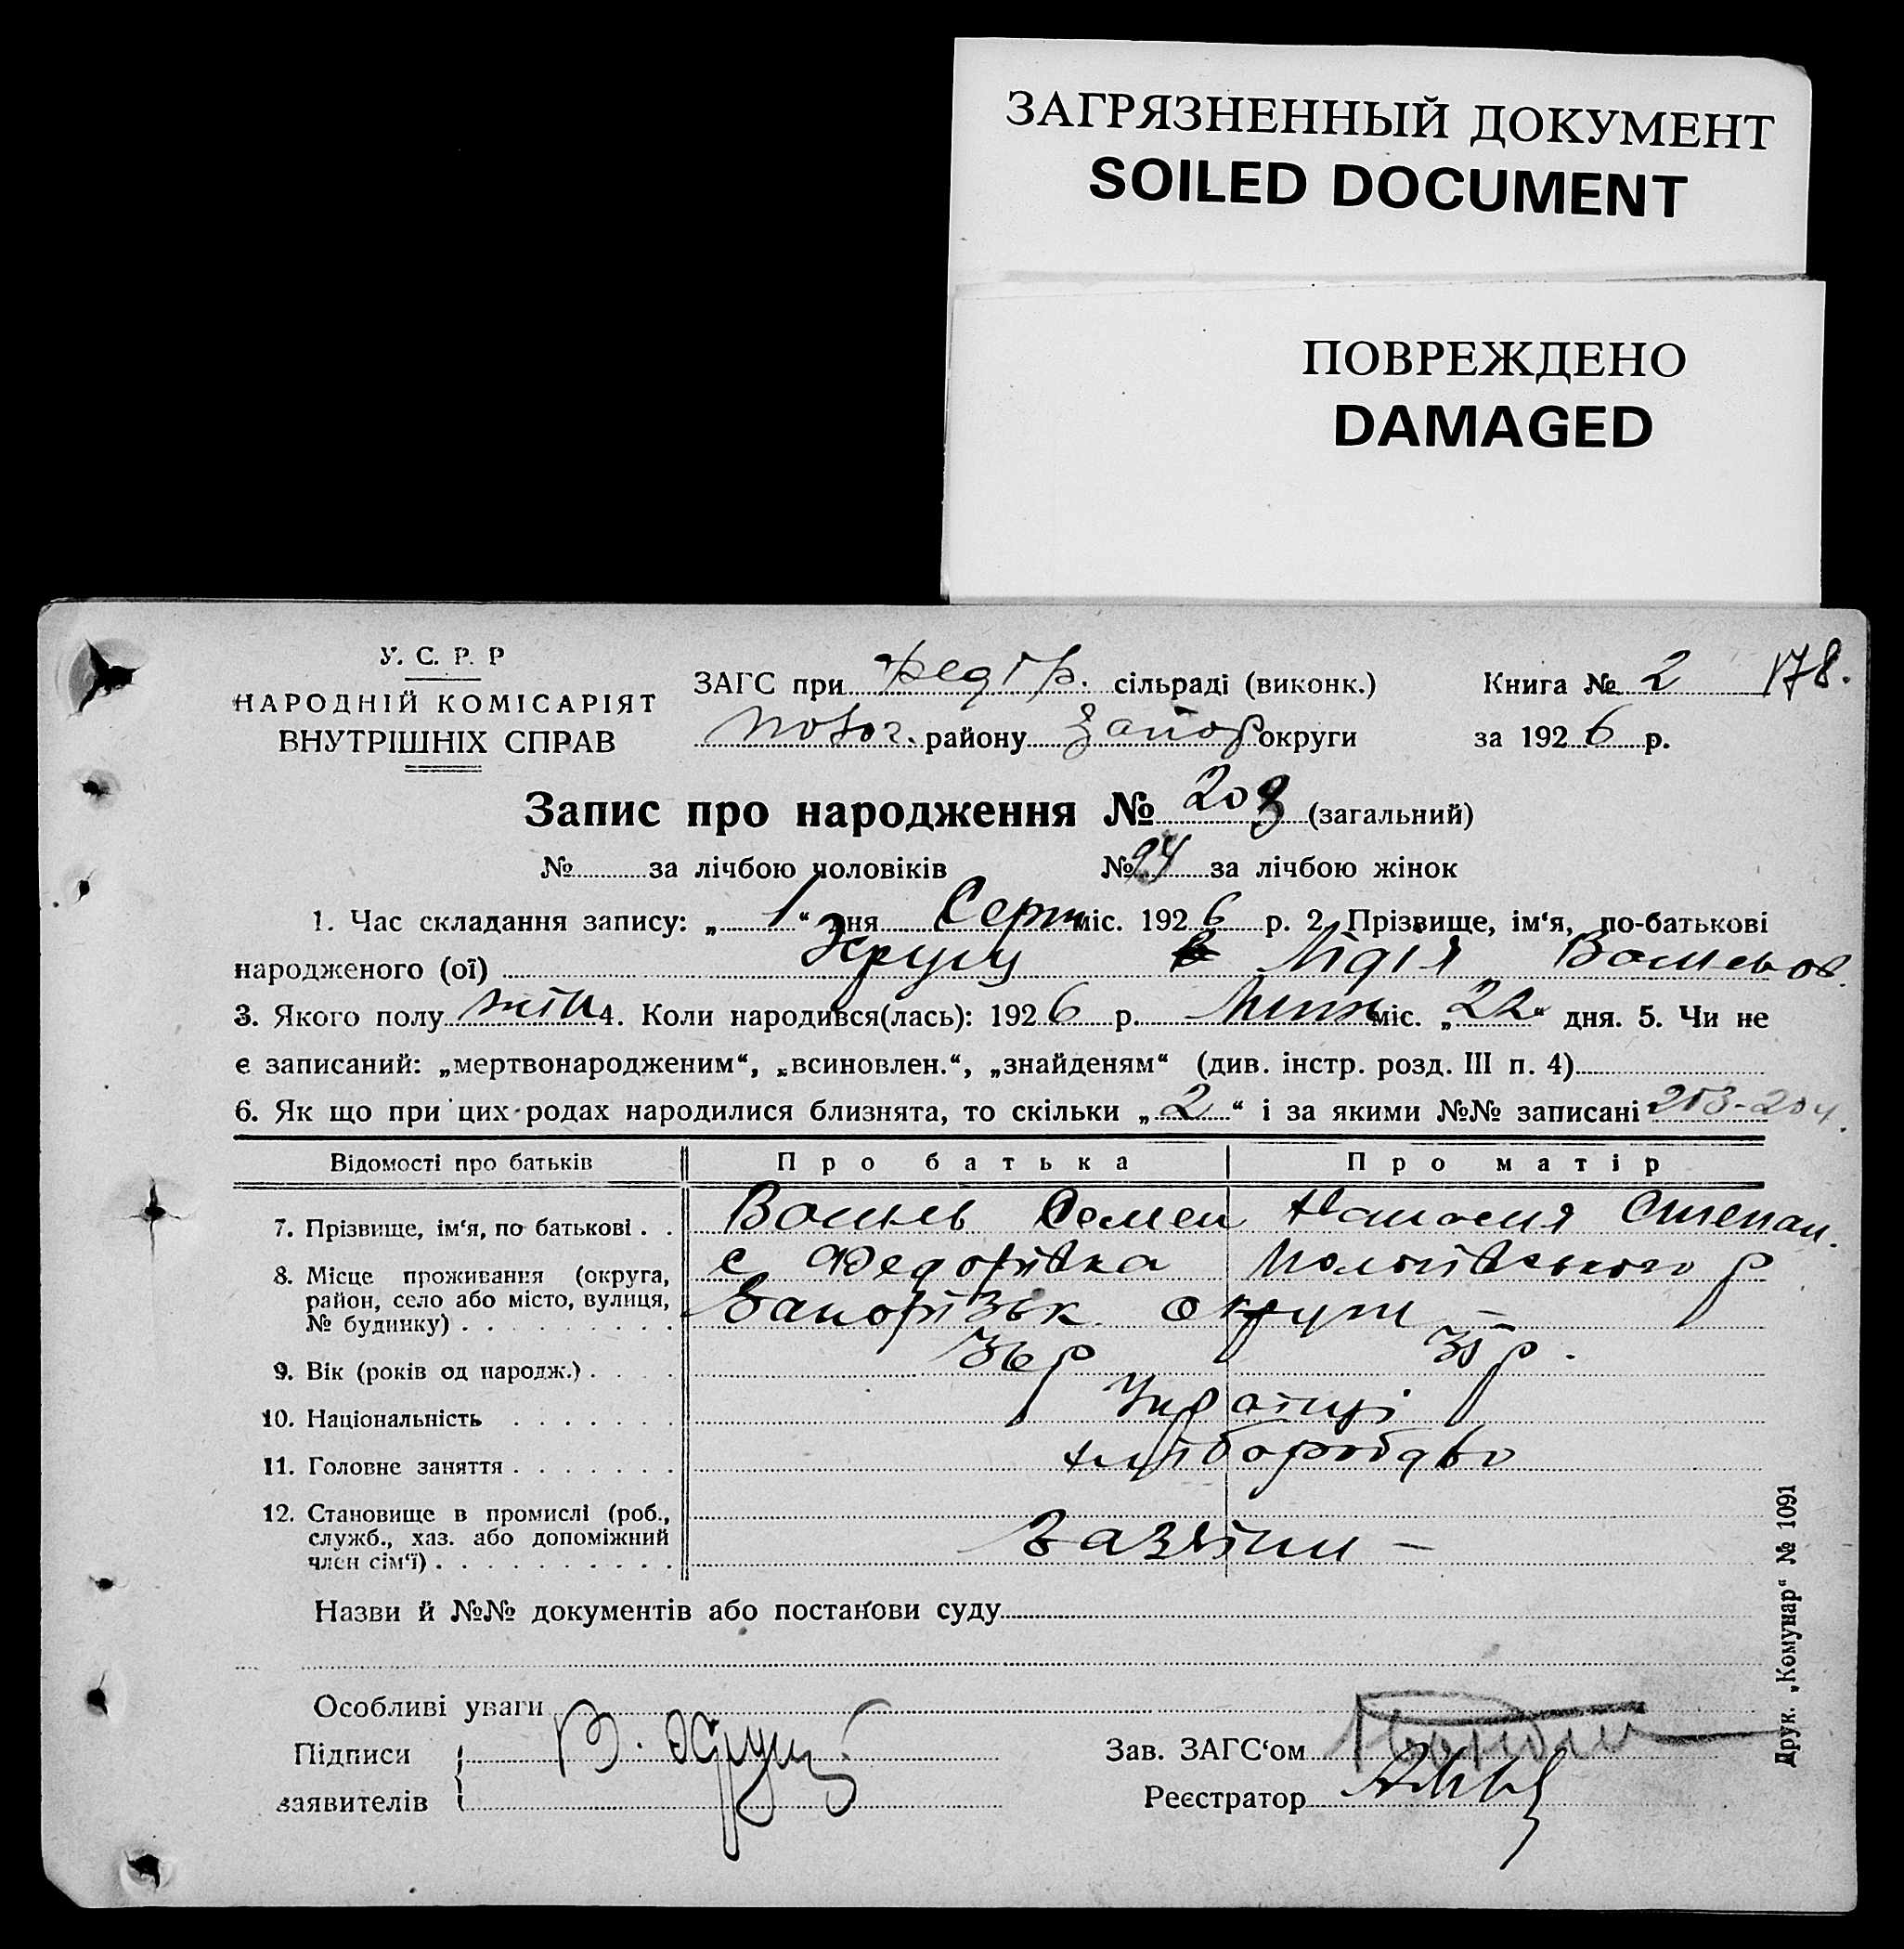 ЗАГРЯЗНЕННЫЙ ДОКУМЕНТ
SOILED DOCUMENT
ПОВРЕЖДЕНО
DAMAGED
У. С. Р. Р
НАРОДНІЙ КОМІСАРІЯТ
ВНУТРІШНІХ СПРАВ
ЗАГС при Федір. сільраді (виконк.)
района району Запор округи
Книга № 2 178.
за 1926 р.
Запис про народження № 203 (загальний)
№ за лічбою чоловіків № 94 за лічбою жінок
1. Час складання запису: „1“ дня Серп міс. 1926 р. 2. Прізвище, ім‘я, по-батькові
народженого (ої) Лідія Васильов.
3. Якого полу жін 4. Коли народився(лась): 1926 р. Липн міс. „22“ дня. 5. Чи не
є записаний: „мертвонародженим“, „всиновлен.“, „знайденям“ (див. інстр. розд. III п. 4)
6. Як що при цих родах народилися близнята, то скільки „2“ і за якими №№ записані 203-204.
Відомості про батьків Про батька Про матір
7. Прізвище, ім‘я, по батькові . . Василь Семен Наталія Степан.
8. Місце проживання (округа, район, село або місто, вулиця, № будинку) . . . . . . . . . с Федорівка р
Запорізьк округи –
9. Вік (років од народж.) . . . . 36 р 35 р.
10. Національність . . . . . . . Українці
11. Головне заняття . . . . . . . хліборобство
12. Становище в промислі (роб., служб., хаз. або допоміжний член сім‘ї) . . . . . . . . . . –
Назви й №№ документів або постанови суду
Особливі уваги
Підписи
заявителів
В.
Зав. ЗАГС‘ом
Реєстратор
Друк. „Комунар“ № 1091